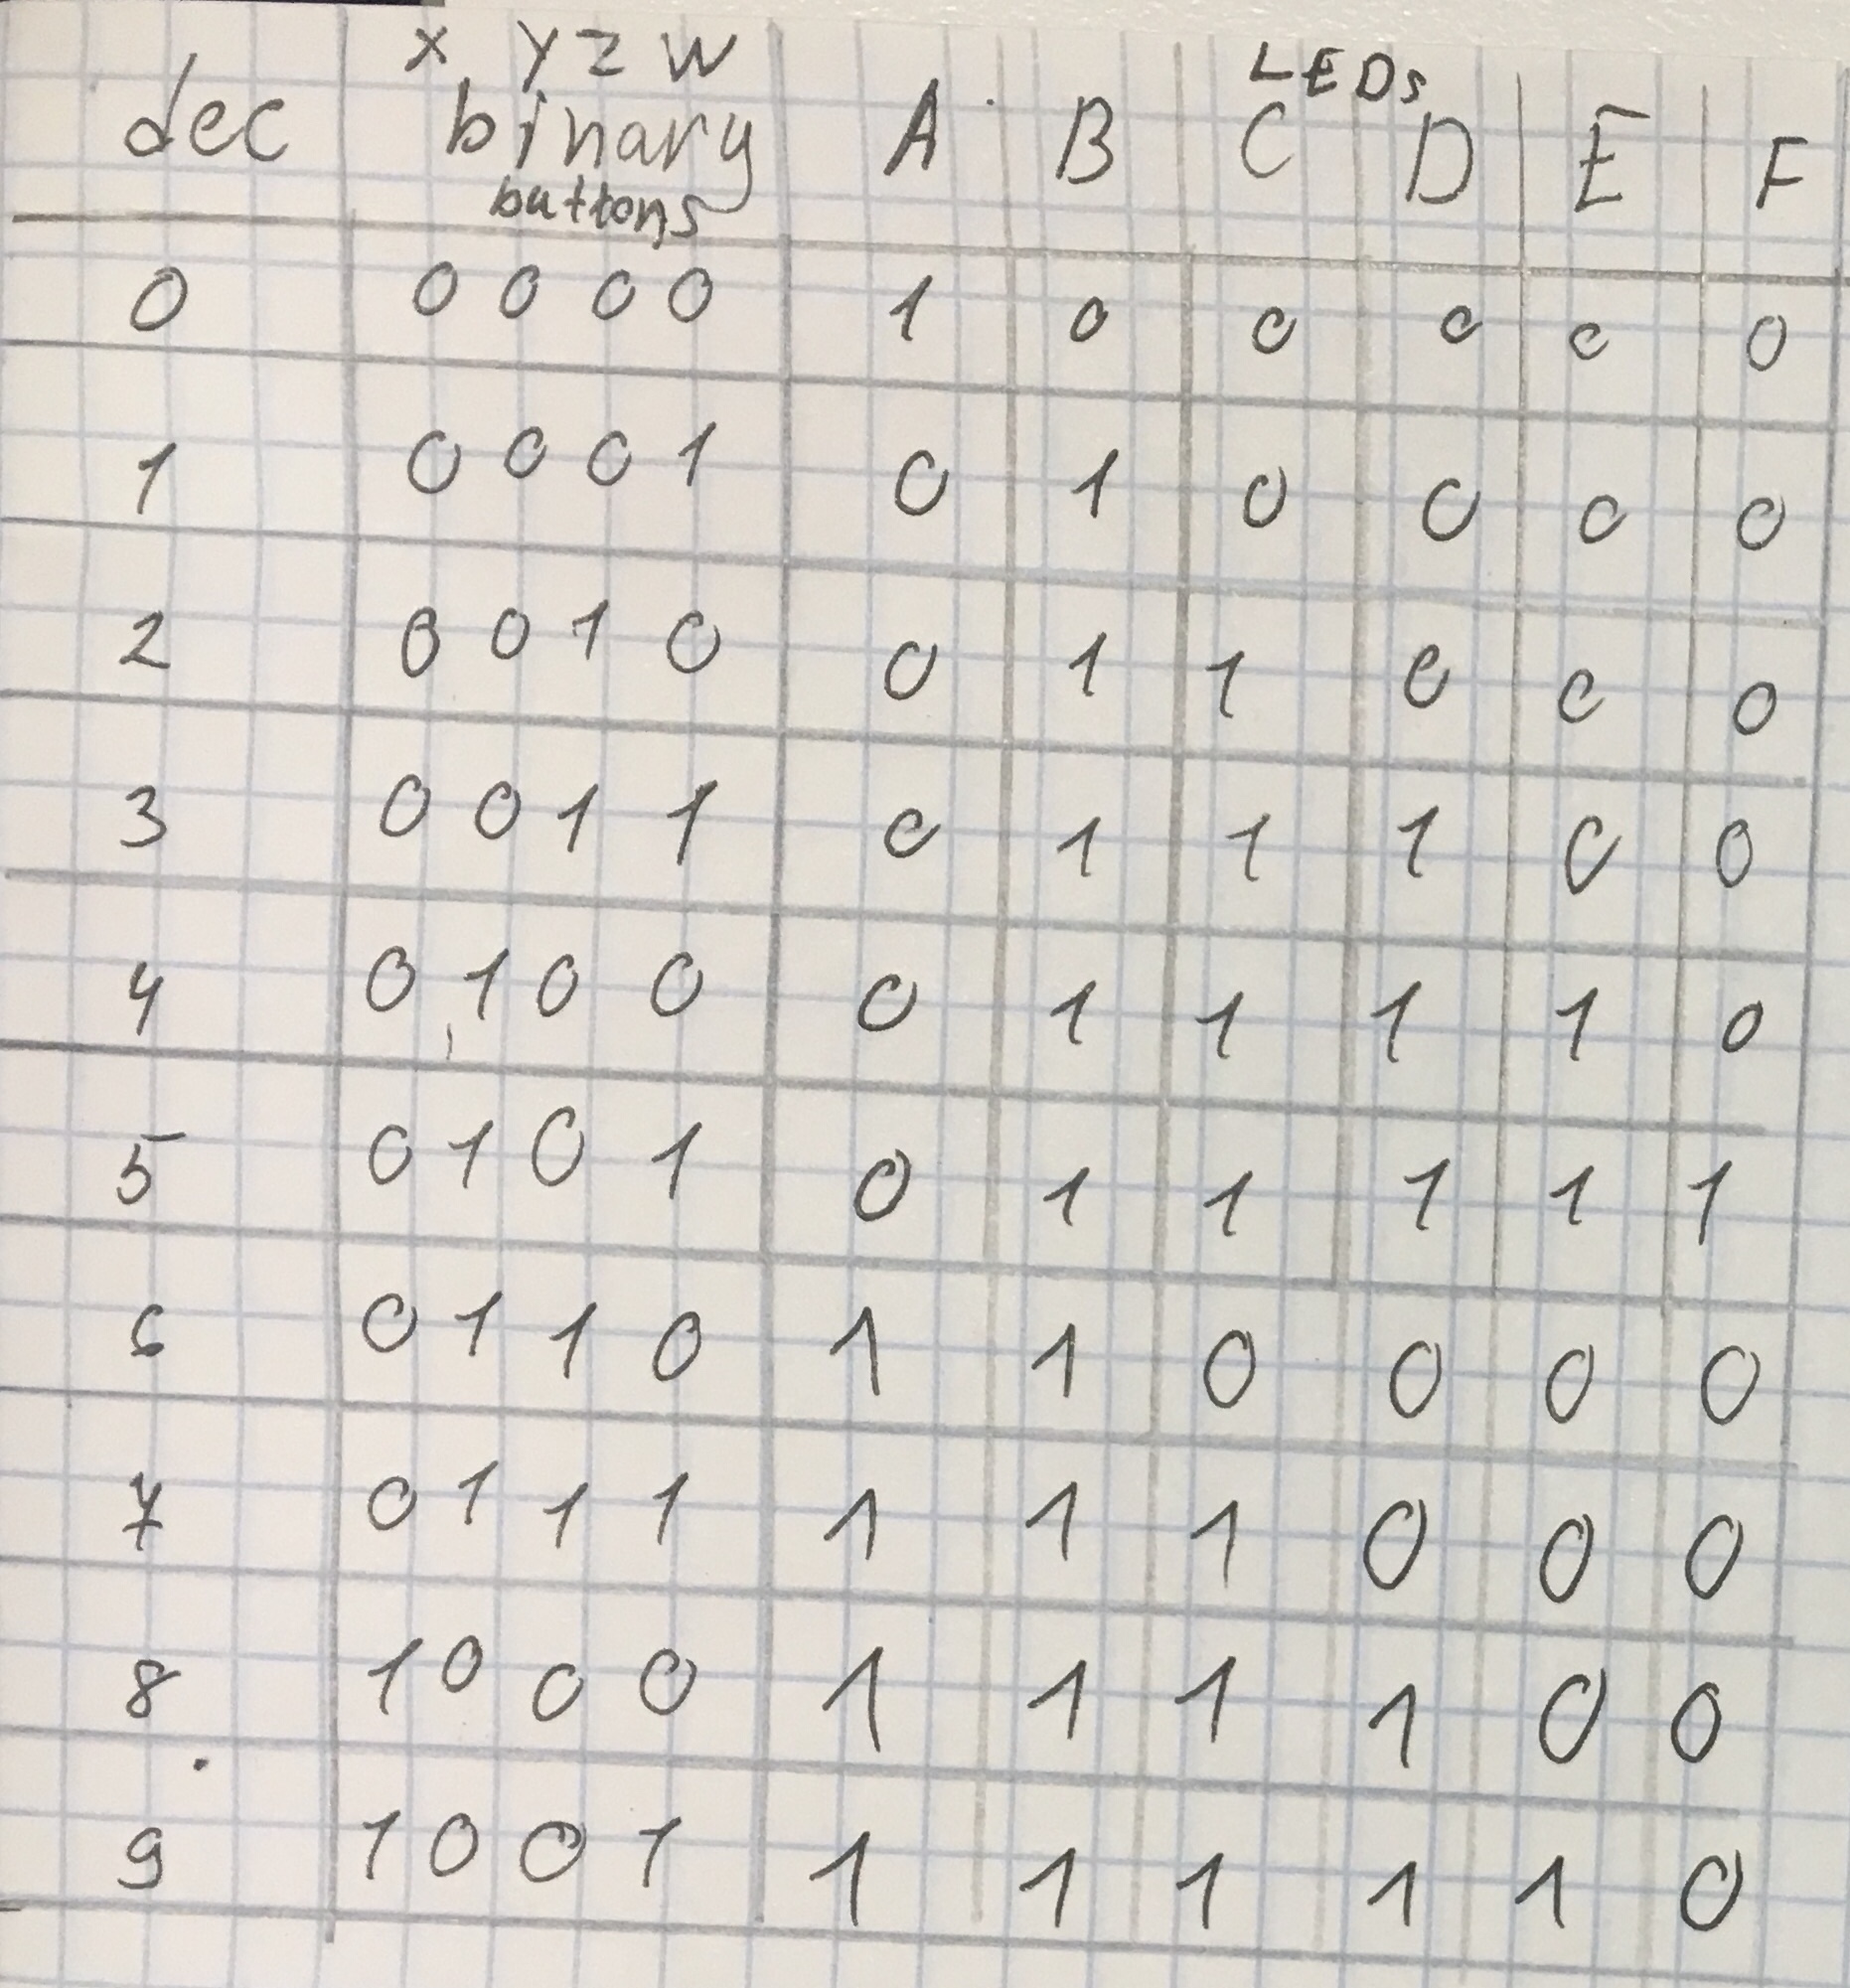 x y z w LEDs
dec binary A B C D E F
buttons
0 0 0 0 0 1 0 0 0 0 0
1 0 0 0 1 0 1 0 0 0 0
2 0 0 1 0 0 1 1 0 0 0
3 0 0 1 1 0 1 1 1 0 0
4 0 1 0 0 0 1 1 1 1 0
5 0 1 0 1 0 1 1 1 1 1
6 0 1 1 0 1 1 0 0 0 0
7 0 1 1 1 1 1 1 0 0 0
8 1 0 0 0 1 1 1 1 0 0
9 1 0 0 1 1 1 1 1 1 0